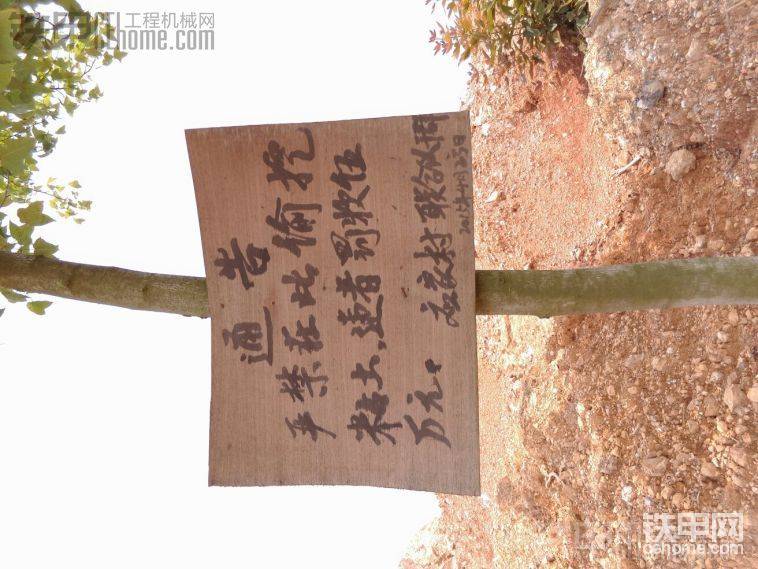 铁甲网 工程机械网
cehome.com
通告
严禁在此偷挖
粘土,违者罚款伍
万元。
农村联合队
铁甲网
cehome.com